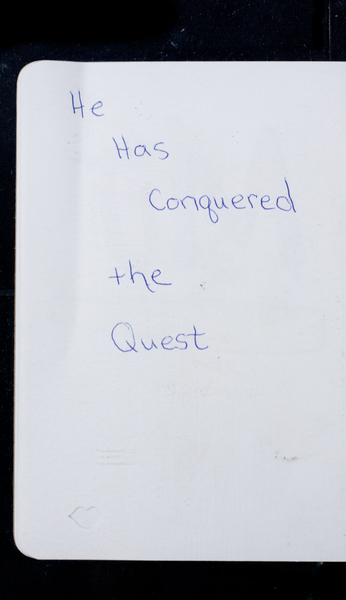 He
Has
Conquered
the
Quest